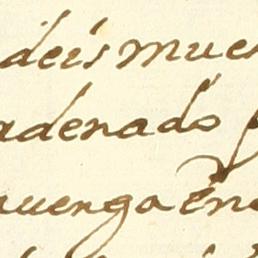 deis mues
adenado
uengo en